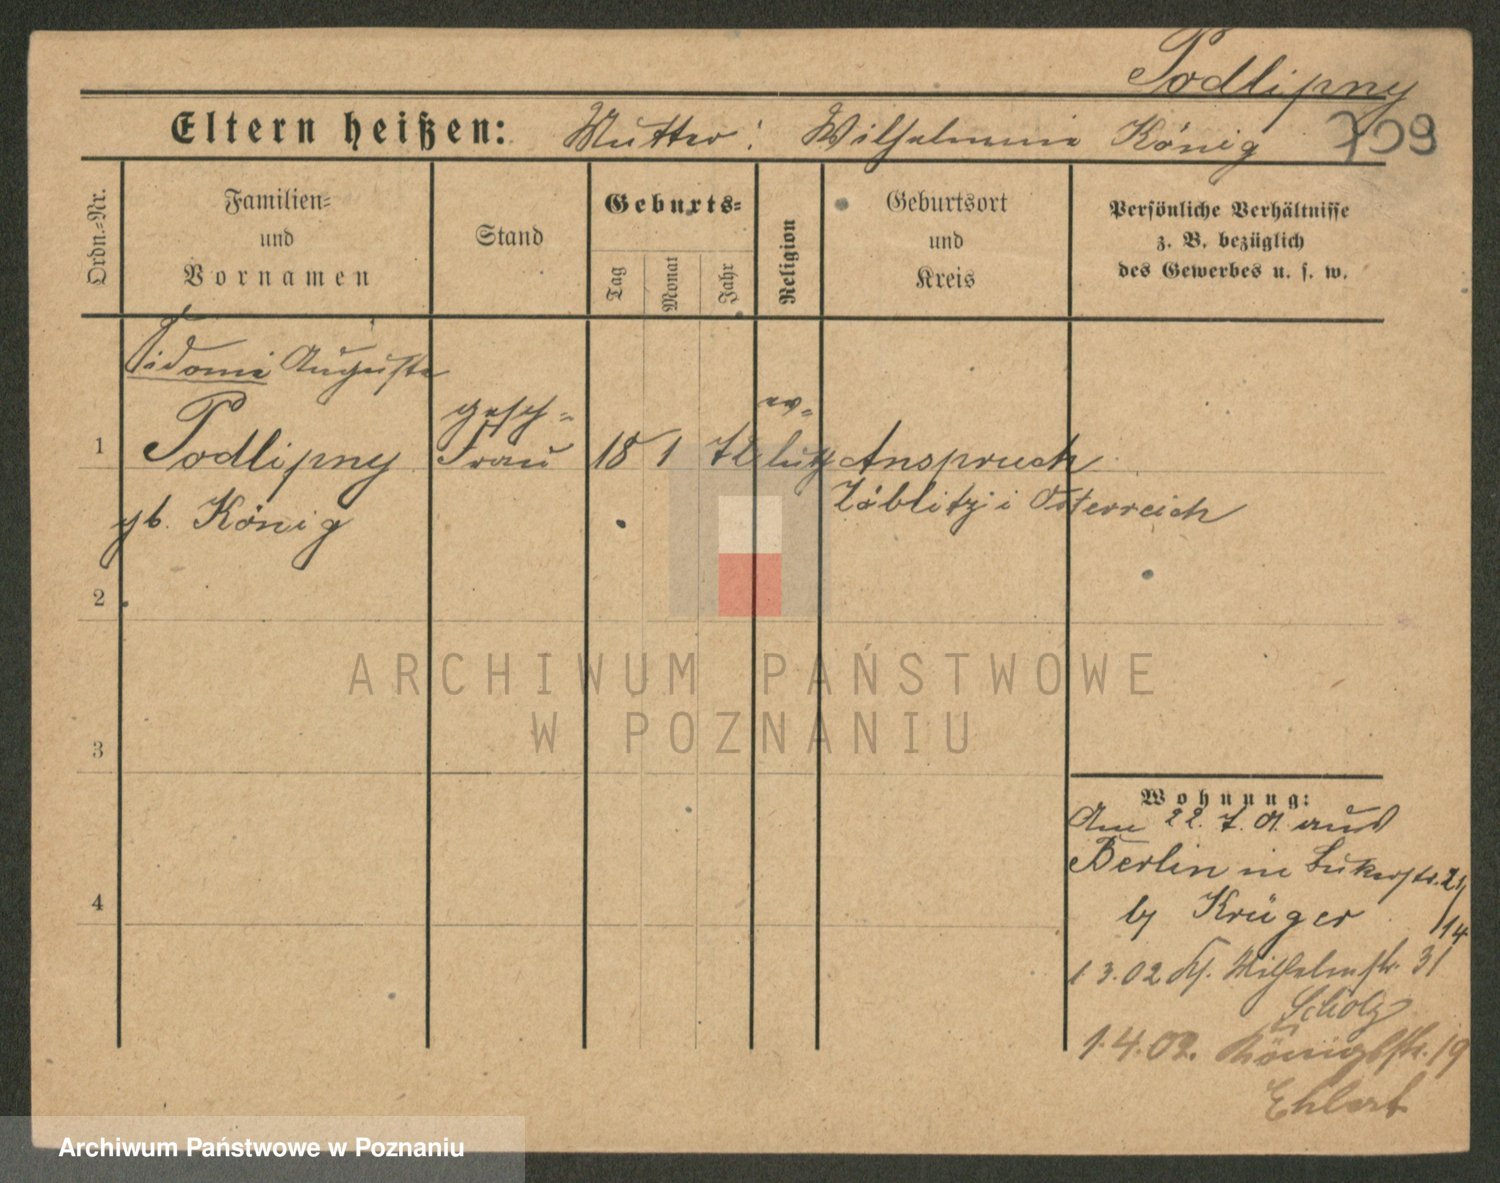 Podlipny
Eltern heißen: Mutter: Wilhelmine König 709
Ordn.-Nr.
Familien-
und
Vornamen
Stand
Geburts-
Tag
Monat
Jahr
Religion
Geburtsort
und
Kreis
Persönliche Verhältnisse
z. B. bezüglich
des Gewerbes u. s. w.
Sidonie Auguste
1 Podlipny gesch- Frau 18 1 ev- luth Anspruch
gb. König Zöblitz i Österreich
2
3
4
ARCHIWUM PAŃSTWOWE
W POZNANIU
Wohnung:
Am 22. 7. 01. aus
Berlin in
by Krüger 14
1 3.02 Kl. Wilhelmstr. 31
Scholz
1.4.02. Königstr. 19
Ehlert
Archiwum Państwowe w Poznaniu